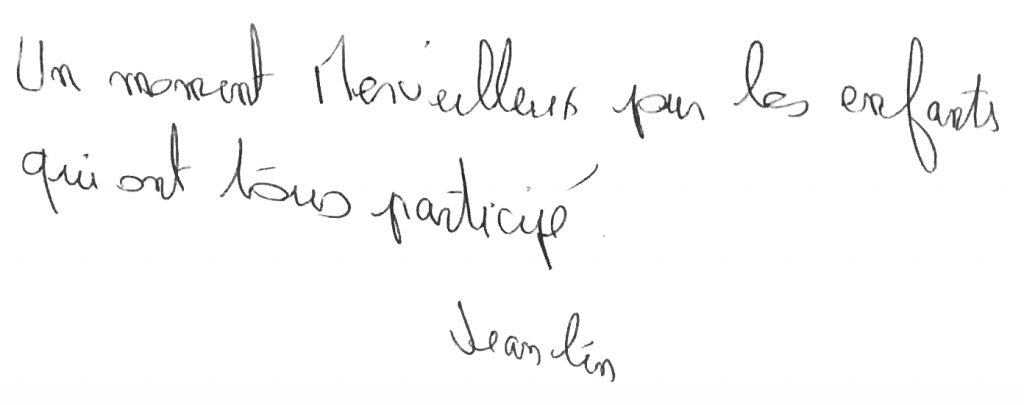 Un moment Merveilleux pour les enfants
qui ont tous participé
Jeanlin